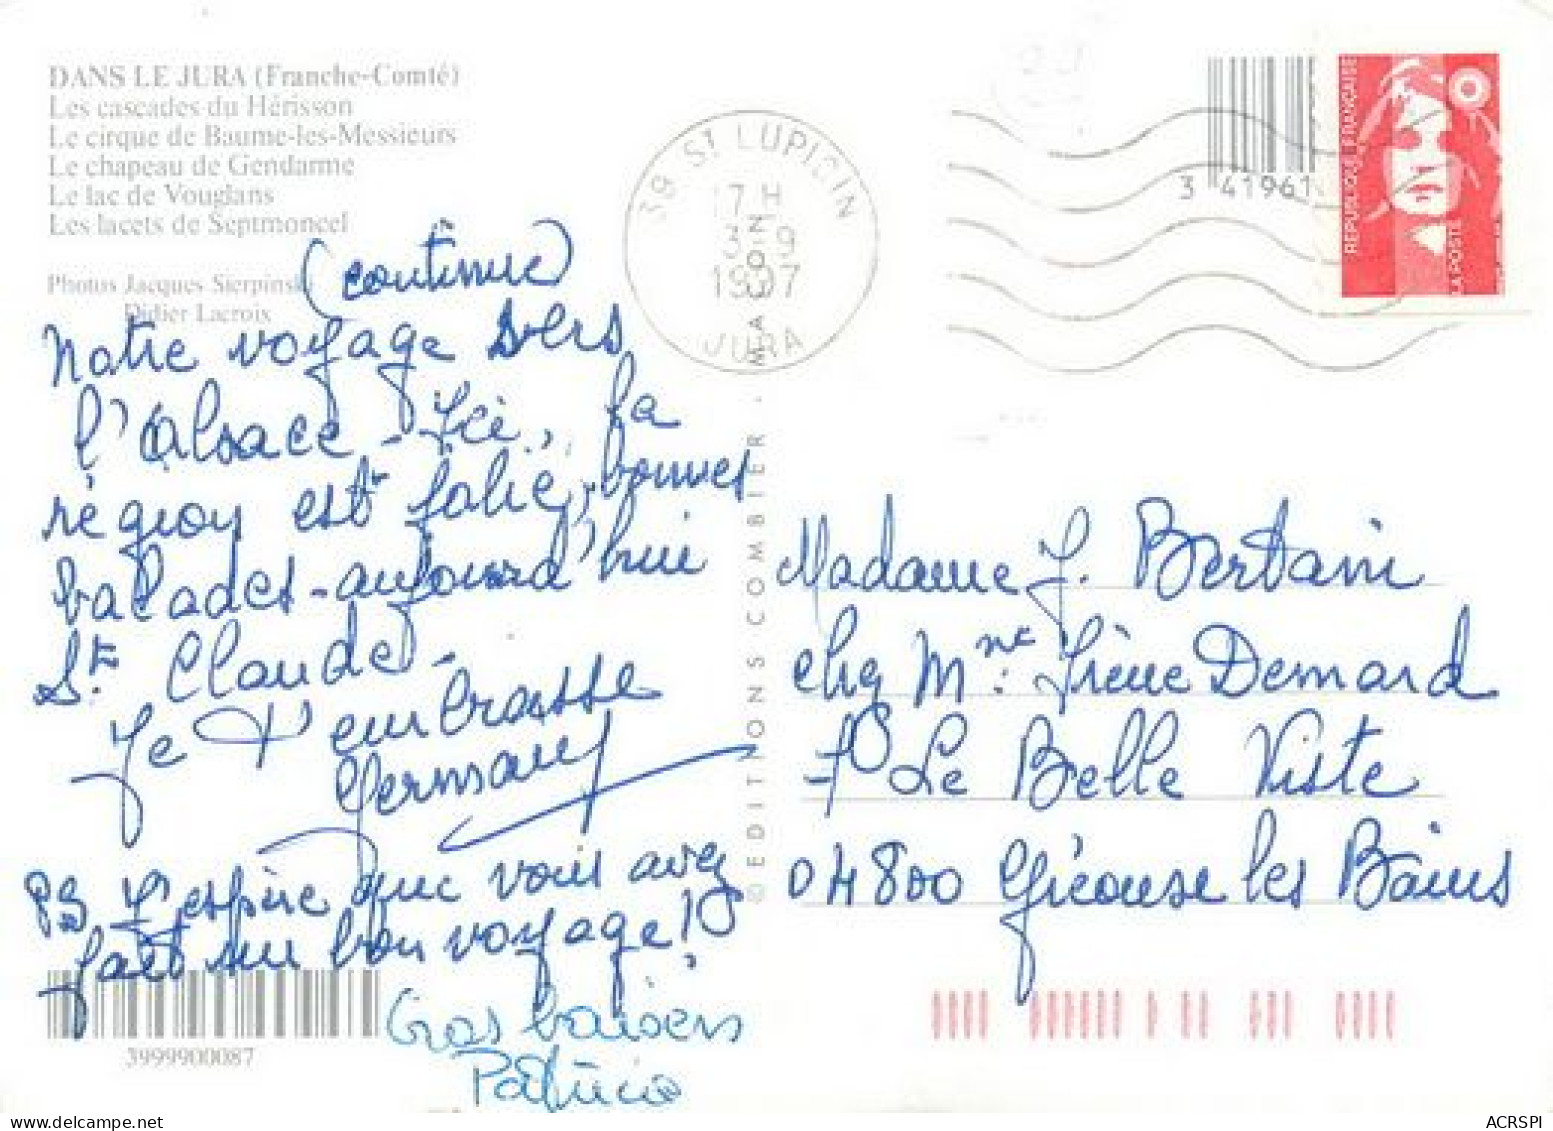 DANS LE JURA (Franche-Comté)
Les cascades du Hérisson
Le cirque de Baume-les-Messieurs
Le chapeau de Gendarme
Le lac de Vouglans
Les lacets de Septmoncel
Photos Jacques Sierpinski
Didier Lacroix
(continue)
Notre voyage vers
l'Alsace - Ici, la
région est jolie, bonnes
balades - aujourd'hui
St. Claude -
Je t'embrasse
Germany
PS J'espère que vous avez
fait un bon voyage!
Gros baisers
Patricia
3999900087
© EDITIONS COMBIER. MACON
39 ST LUPICIN
17 H
3-9
1997
JURA
3 41961
REPUBLIQUE FRANÇAISE
LA POSTE
Madame J. Bertain
chez Mme: Irène Demard
Le Belle Viste
04800 Gréouse les Bains
ACRSPI